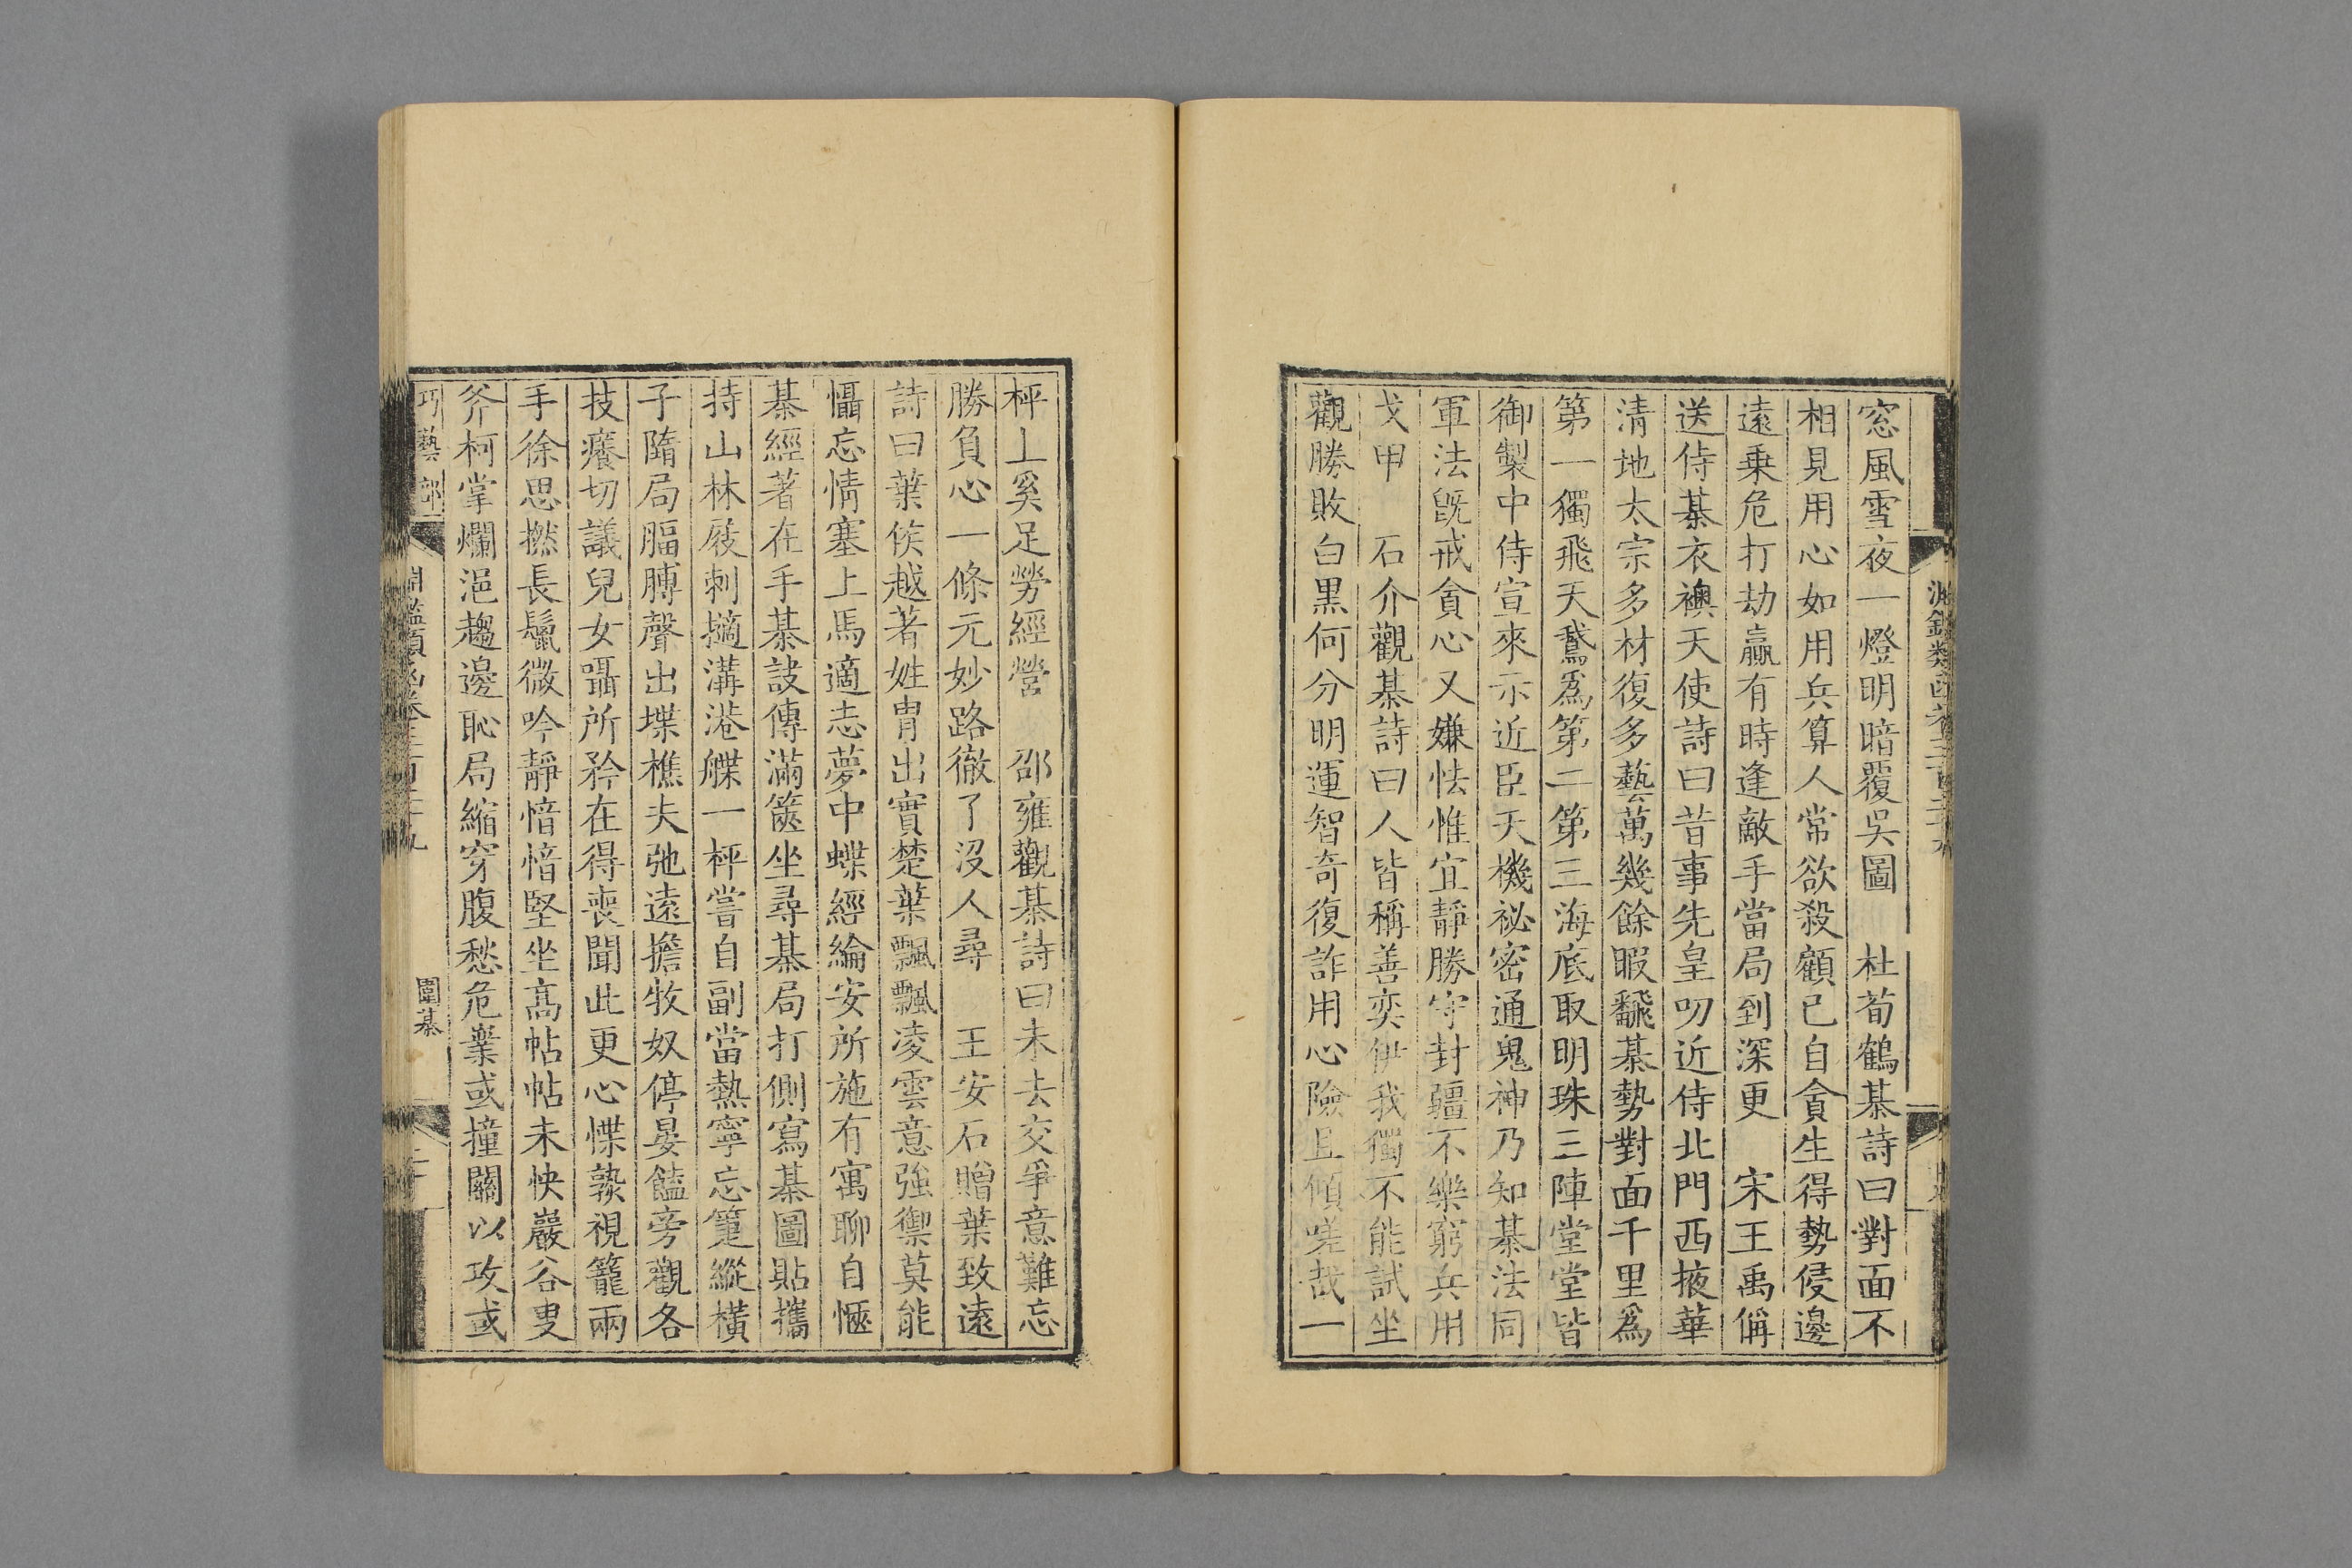 窓風雪夜一燈明暗覆吳圖　杜荀鶴棊詩曰對面不
相見用心如用兵算人常欲殺顧已自貪生得勢侵邊
遠乗危打劫贏有時逢敵手當局到深更　宋王禹偁
送侍棊衣襖天使詩曰昔事先皇叨近侍北門西掖華
清地太宗多材復多藝萬幾餘暇飜棊勢對面千里爲
第一獨飛天鵞爲第二第三海底取明珠三陣堂堂皆
御製中侍宣來示近臣天機祕密通鬼神乃知棊法同
軍法旣戒貪心又嫌怯惟宜靜勝守封疆不樂窮兵用
戈甲　石介觀棊詩曰人皆稱善奕伊我獨不能試坐
觀勝敗白黒何分明運智奇復詐用心險且傾嗟哉一
枰上奚足勞經營　邵雍觀棊詩曰未去交爭意難忘
勝負心一條元妙路徹了沒人尋　王安石贈葉致遠
詩曰葉侯越著姓胄出實楚葉飄飄凌雲意強禦莫能
懾忘情塞上馬適志夢中蝶經綸安所施有寓聊自愜
棊經著在手棊訣傳滿篋坐尋棊局打側寫棊圖貼攜
持山林屐刺擿溝港艓一枰嘗自副當熱寧忘箑縱橫
子隋局腷膊聲出堞樵夫弛遠擔牧奴停晏饁旁觀各
技癢切議兒女囁所矜在得喪聞此更心惵孰視籠兩
手徐思撚長鬣微吟靜愔愔堅坐高帖帖未怏巖谷叟
斧柯掌爛浥趨邊恥局縮穿腹愁危嶪或撞關以攻或
巧藝部
圍棊